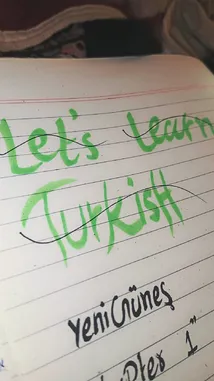 Let's Learn
Turkish
YeniGüneş
1"